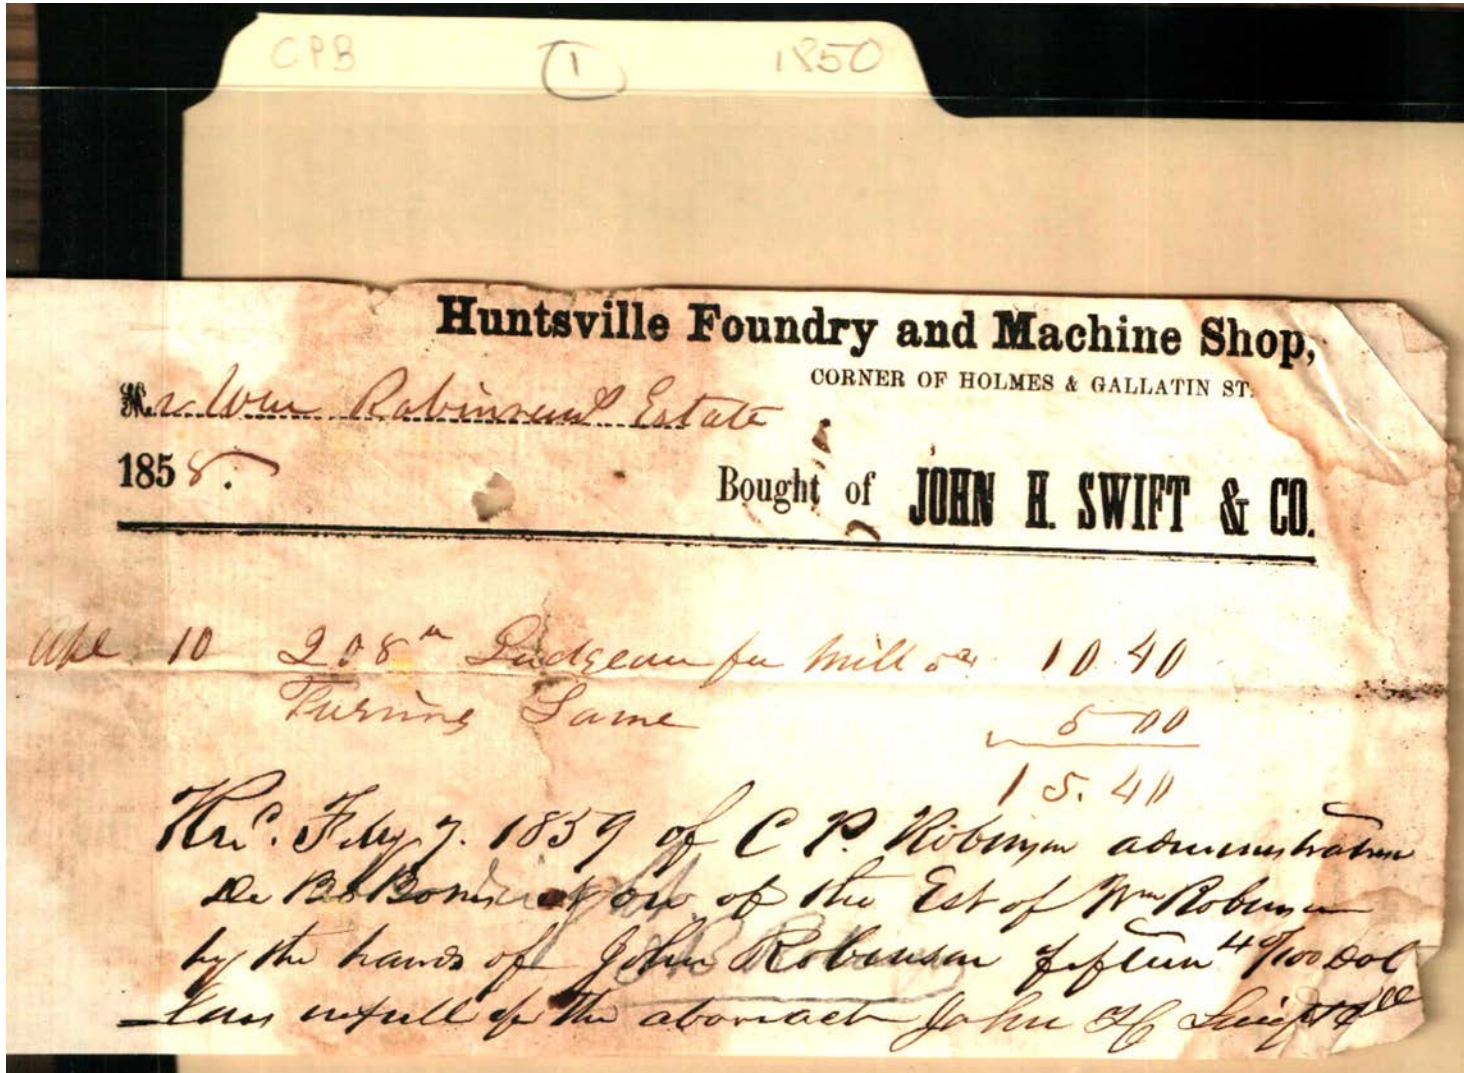 CPB 1 1850
Huntsville Foundry and Machine Shop,
CORNER OF HOLMES & GALLATIN ST.
Mr Wm Robinsons Estate
1858. Bought of JOHN H. SWIFT & CO.
10 208 Gudgeon for Mill 10.40
Turning Same 5 00
15.40
Rec. Feby 7. 1859 of C P. Robinson administrator
De Bonis non of the Est of Wm Robinson
by the hands of John Robinson fifteen 40/100 Dol
lars in full of the above act John H Swift & Co